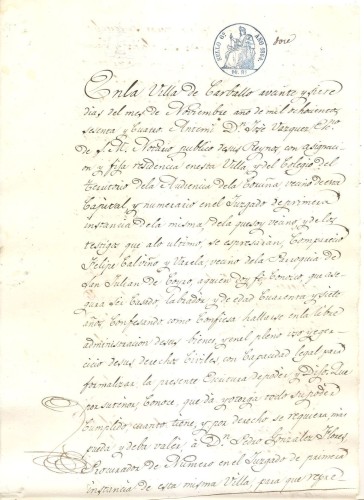 SELLO 9º AÑO 1864
doce
En la Villa de Carballo a veinte y siete
dias del mes de Noviembre año de mil ochocientos
sesenta y cuatro. Ante mi Dn. José Vazquez Esno.
de S. M. Notario publico de sus Reynos con asignacion
y fija residencia en esta Villa del Colegio del
territorio de la Audiencia de la Coruña vecino de esta
Capital, y numerario en el Juzgado de primera
instancia de la misma, de la que soy vecino, y de los
testigos que a lo ultimo, se espresarán, Comparecio
Felipe Calviño y Varela, vecino de la Parroquia de
San Julian de Coyro, a quien doy fé conozco, que ase-
gura ser Casado, labrador, y de edad cuarenta y siete
años, Confesando como Confiesa hallarse en la libre
administracion de sus bienes y en el pleno uso y eger-
cicio de sus derechos Civiles, con capacidad legal para
formalizar la presente Escritura de poder y Dijo: Que
por su tenor, Conoce, que da y otorga todo su poder
Cumplido, cuanto tiene, y por derecho se requiera, mas
pueda y deba valer, a Dn. Pedro Gonzalez Flores
Procurador de Número en el Juzgado de primera
instancia de esta misma Villa, para que repre-